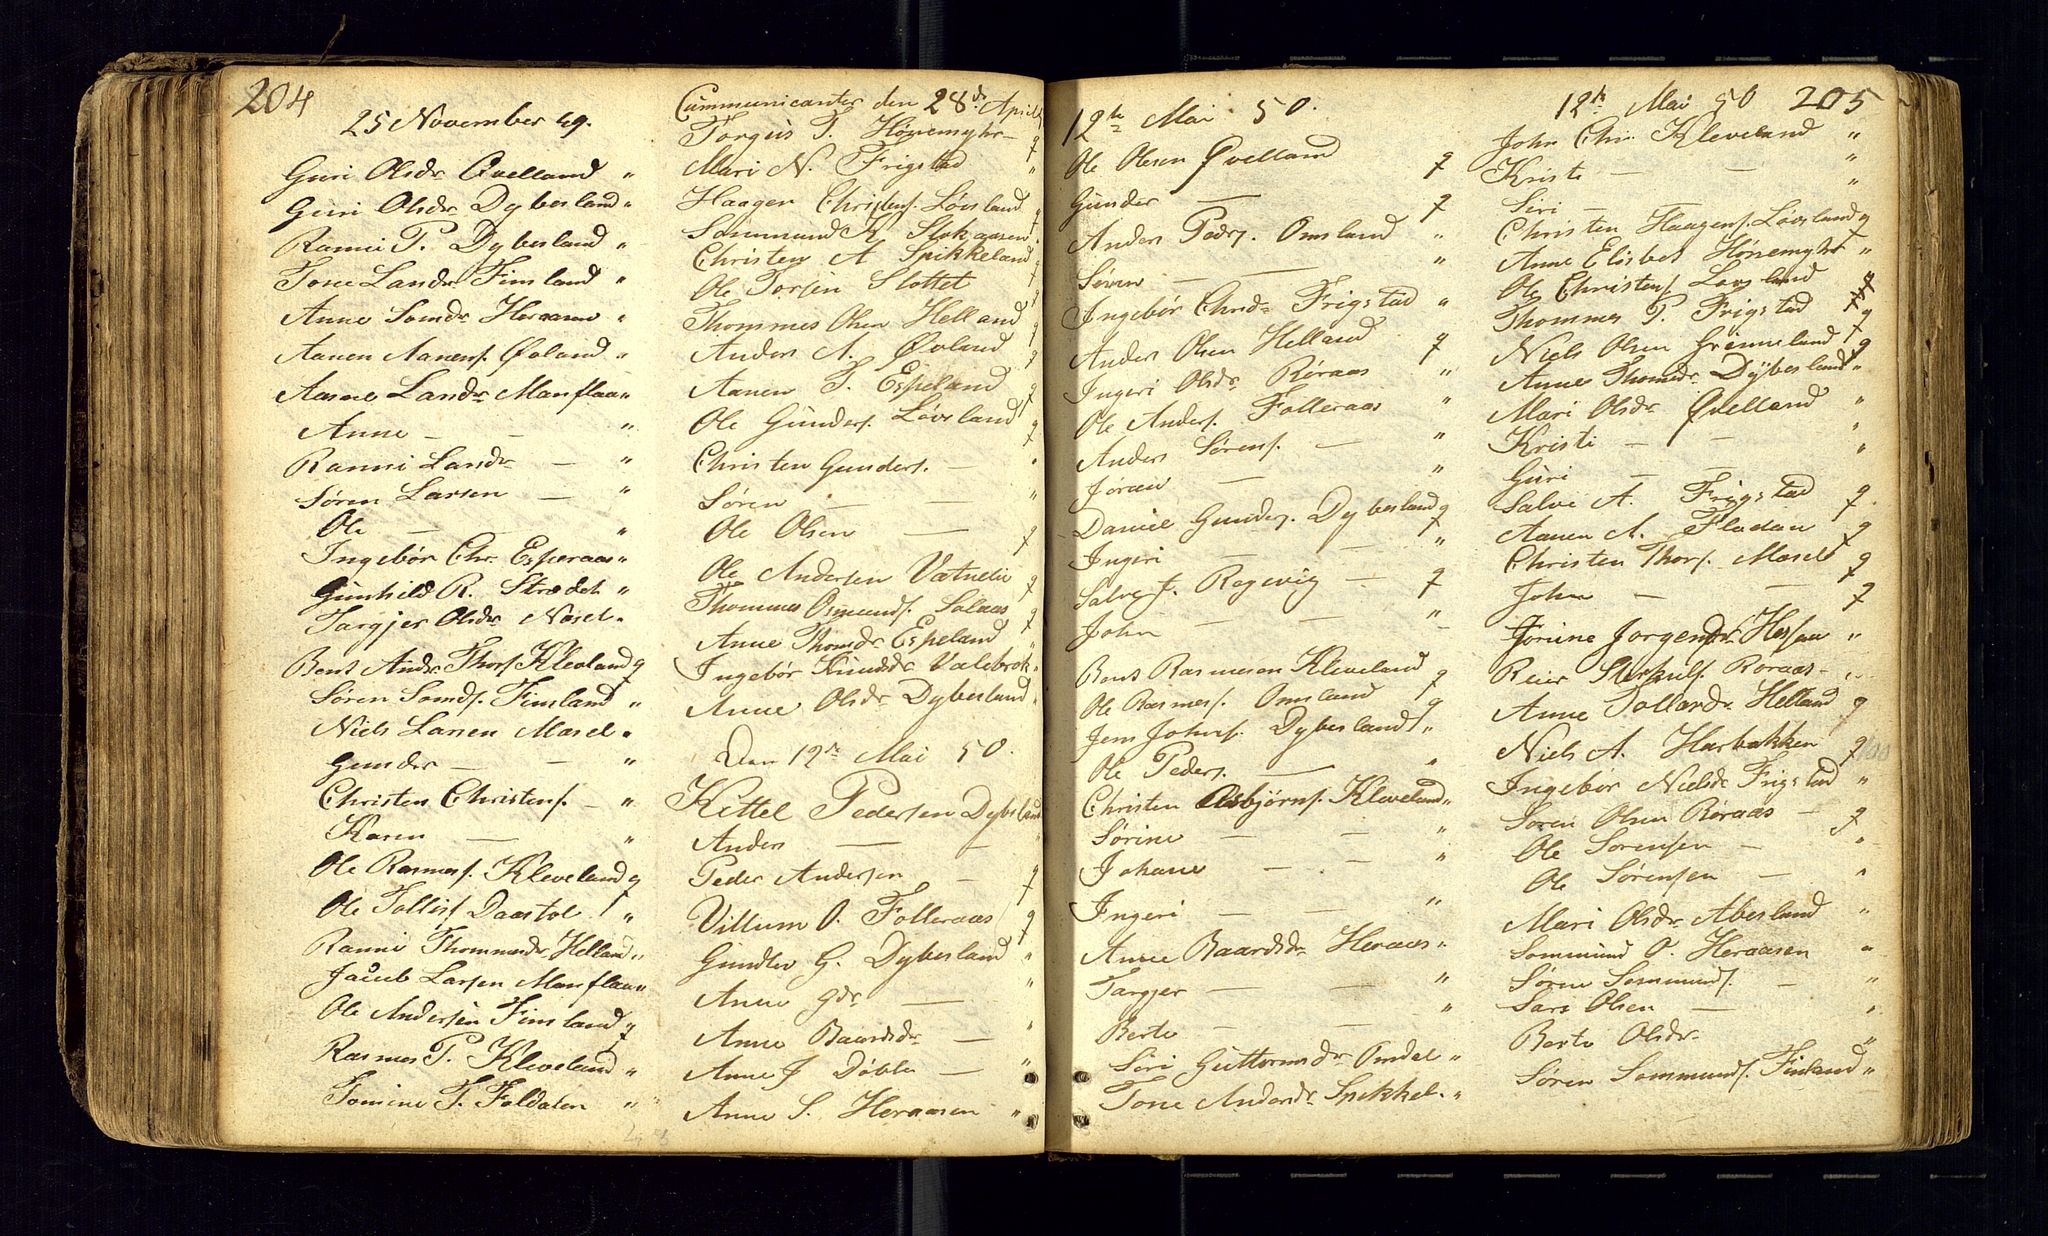 204
25 November 49.
Guri Olsdr Øvelland "
Guri Olsdr Dybesland "
Ranni P. Dybesland "
Tone Larsdr Finsland "
Anne Somdr Heraasen "
Aanen Aanens. Øvland "
Aasne Larsdr Manflaa "
Anne — — "
Ranni Larsdr — "
Søren Larsen — "
Ole — — "
Ingebor Chr. Esperaas "
Gunhild R. Strædet "
Targjer Olsdr Nosel. "
Bent Andr. Thors. Kleveland q
Søren Somds. Finsland "
Niels Larsen Mosel "
Gunder — — "
Christen Christens. — "
Karen — "
Ole Rasmuss. Kleveland q
Ole Tollefs. Daastol "
Ranni Thommesdr Helland "
Jacob Larsen Manflaa "
Ole Andersen Finsland q
Rasmus P. Kleveland "
Tomine T. Foldalen "
Communicanter den 28de April
Torgus T. Hønemyhr — q
Mari N. Frigstad "
Haagen Christens. Løvsland q
Sommund K. Stokaasen "
Christen A. Spikkeland q
Ole Torsen Slottet q
Thommes Olsen Helland q
Anders A. Øvland q
Aanen T. Espeland q
Ole Gunders. Løvsland q
Christen Gunders. — "
Søren — — "
Ole Olsen — q
Ole Andersen Vatnelie q
Thommes Osmunds. Solaas q
Anne Thomsdr Espeland "
Ingebor Knudsdr Valebrok "
Anne Olsdr Dybesland "
Den 12te Mai 50.
Kittel Pedersen Dybesland
Anders — — "
Peder Andersen — q
Villum O. Folleraas q
Gundler G. Dybesland "
Anne gdr — "
Anne Baardsdr — "
Anne J. Døble — "
Anne S. Heraasen "
12te Mai 50.
Ole Olsen Øvelland q
Gunder — q
Anders Peders. Omsland "
Søren — — "
Ingebor Chrdr Frigstad "
Anders Olsen Helland q
Ingeri Olsdr Røraas "
Ole Anders. Folleraas "
Anders Sørens. — "
Joran — "
Daniel Gunders. Dybesland q
Ingeri — — "
Salve J. Rogevig — q
John — — "
Bent Rasmusen Kleveland q
Ole Rasmuss. Omsland q
Jens Johns. Dybesland "
Ole Peders. — "
Christen Asbjørns. Kleveland "
Sørine — — "
Johane — — "
Ingeri — — "
Anne Baardsdr Heraas "
Targjer — — "
Berte — — "
Siri Guttormsdr Omdal "
Tone Andersdr Spikkel. "
12te Mai 50 205
John Chr. Kleveland "
Kristi — — "
Siri — "
Christen Haagens. Løvsland q
Anne Elisbet Hønemyhr "
Ole Christens. Lovsland q
Thommes P. Frigstad q
Niels Olsen Grimmeland q
Anne Thomsdr Dybesland "
Mari Olsdr Øvelland "
Kristi — — "
Guri — — "
Salve A. Frigstad q
Aanen A. Flodan q
Christen Thors. Mosel q
John — — q
Jonine Jorgensdr Hessaa "
Reier Røraas "
Anne Tollafsdr Helland q
Niels A. Harbakken q
Ingebor Nielsdr Frigstad "
Soren Olsen Røraas — q
Ole Sorensen — "
Ole Sørensen — "
Mari Olsdr Abesland "
Sommund O. Heraasen "
Sørine Sommunds. — "
Lars Olsen — "
Berte Olsdr — "
Søren Sommunds. Finsland "